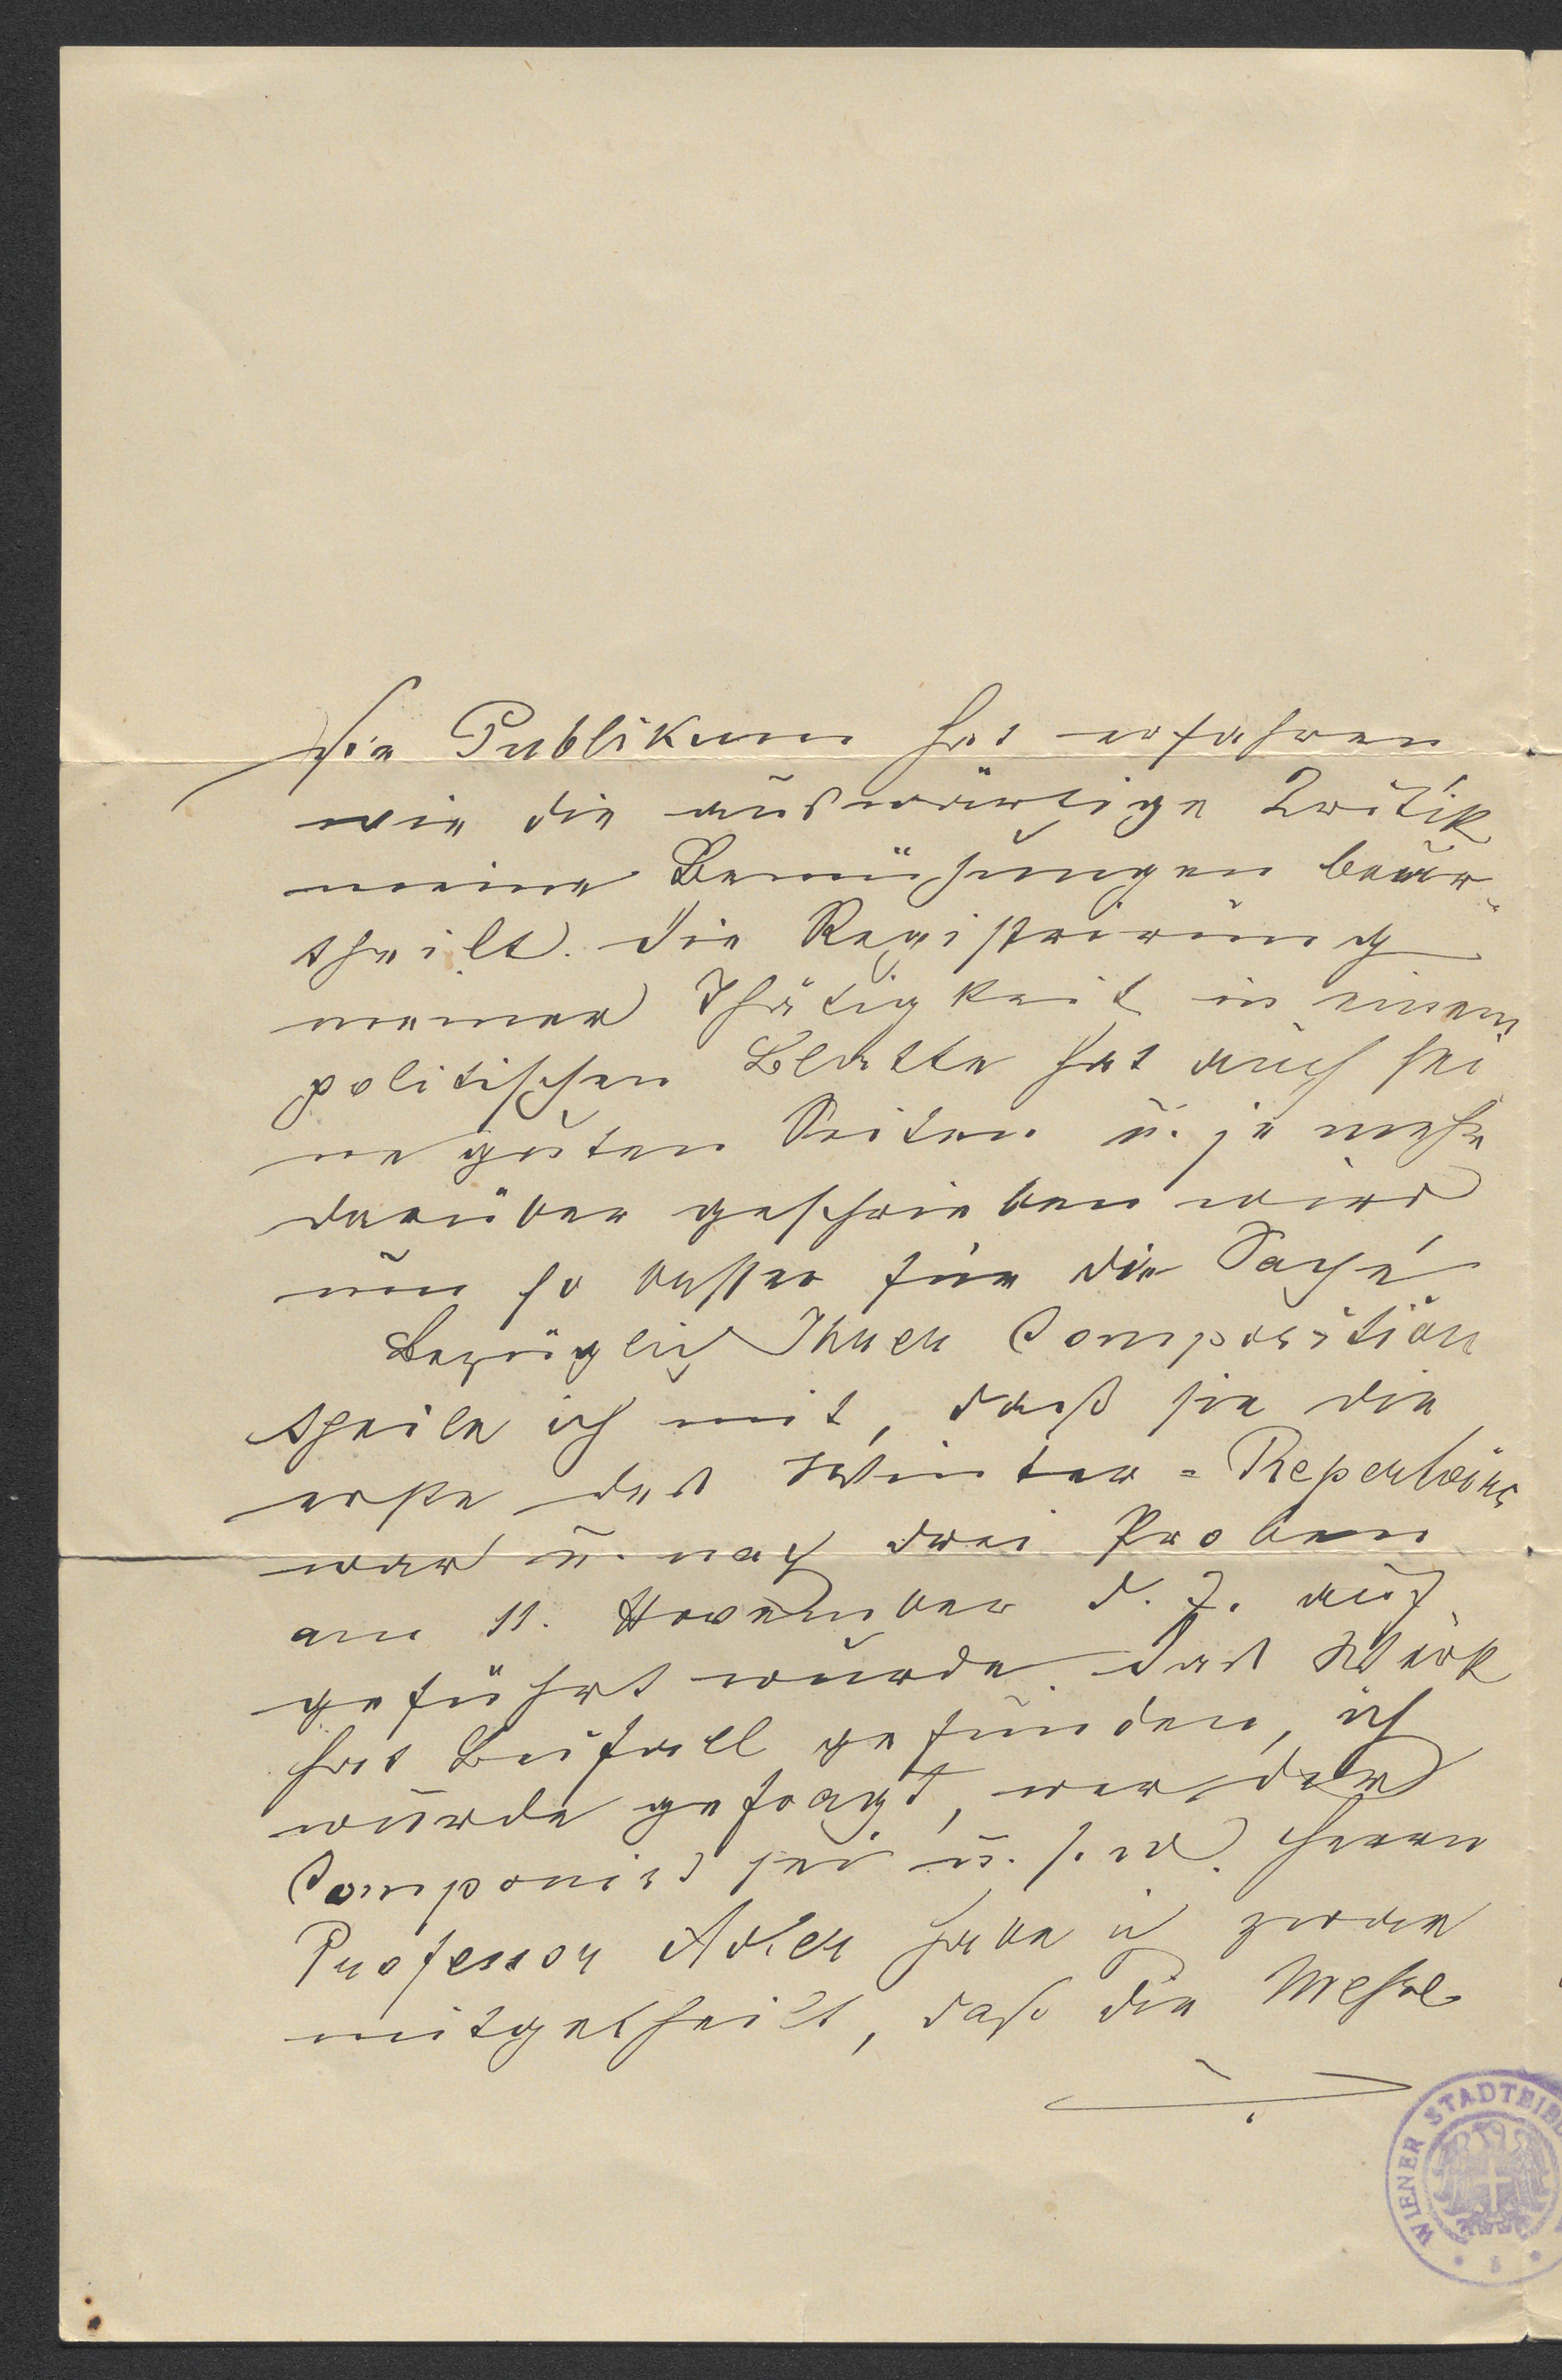 hie Publikum hat erfahren
wie die auswärtige Kritik
meine Bemühungen beur-
theilt. Die Registrirung
meiner Thätigkeit in einem
politischen Blatte hat auch sei
ne guten Seiten u. je mehr
darüber geschrieben wird
um so besser für die Sache.
Bezüglich Ihrer Composition
theile ich mit, daß sie die
erste des Winter-Repertoirs
war u. nach drei Proben
am 11. November d. J. auf
geführt wurde. Das Werk
hat Beifall gefunden, ich
wurde gefragt, wer der
Componist sei u. s. w. Herrn
Professor Adler habe ich zwar
mitgetheilt, daß die
WIENER STADTBIB